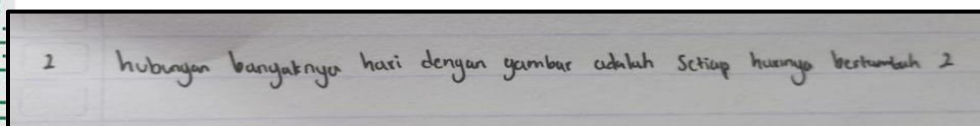 2 hubungan banyaknya hari dengan gambar adalah setiap harinya bertumbuh 2